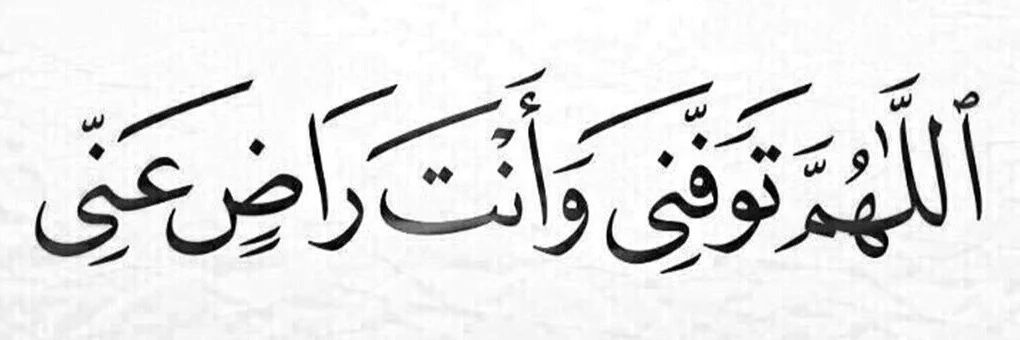 ٱللَّهُمَّ تَوَفَّنِي وَأَنْتَ رَاضٍ عَنِّي